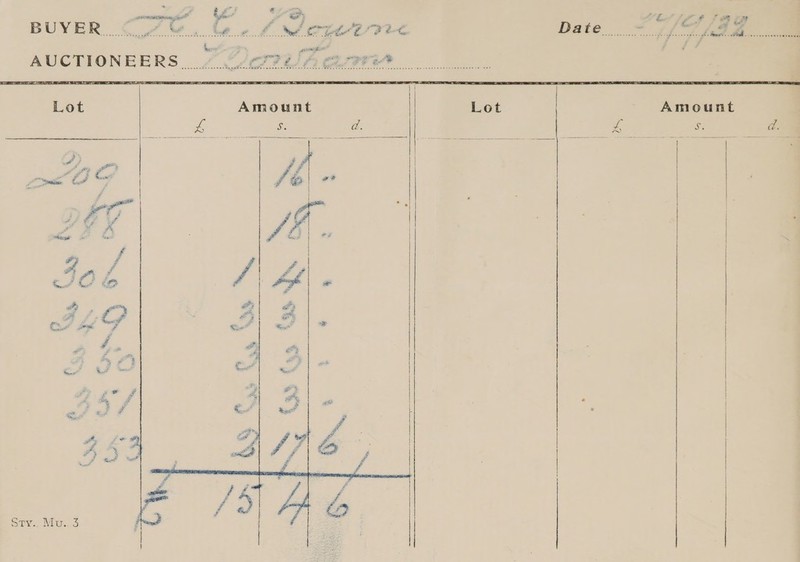 BUYER H. C. Bourne Date 24/9/32
AUCTIONEERS Bonhams
Lot Amount Lot Amount
£ s. d. £ s. d.
209 16 ..
288 18 ..
306 1 4 .
349 3 3 .
350 3 3 -
351 3 3 -
353 2 17 6
£ 15 4 6
STY. MU. 3